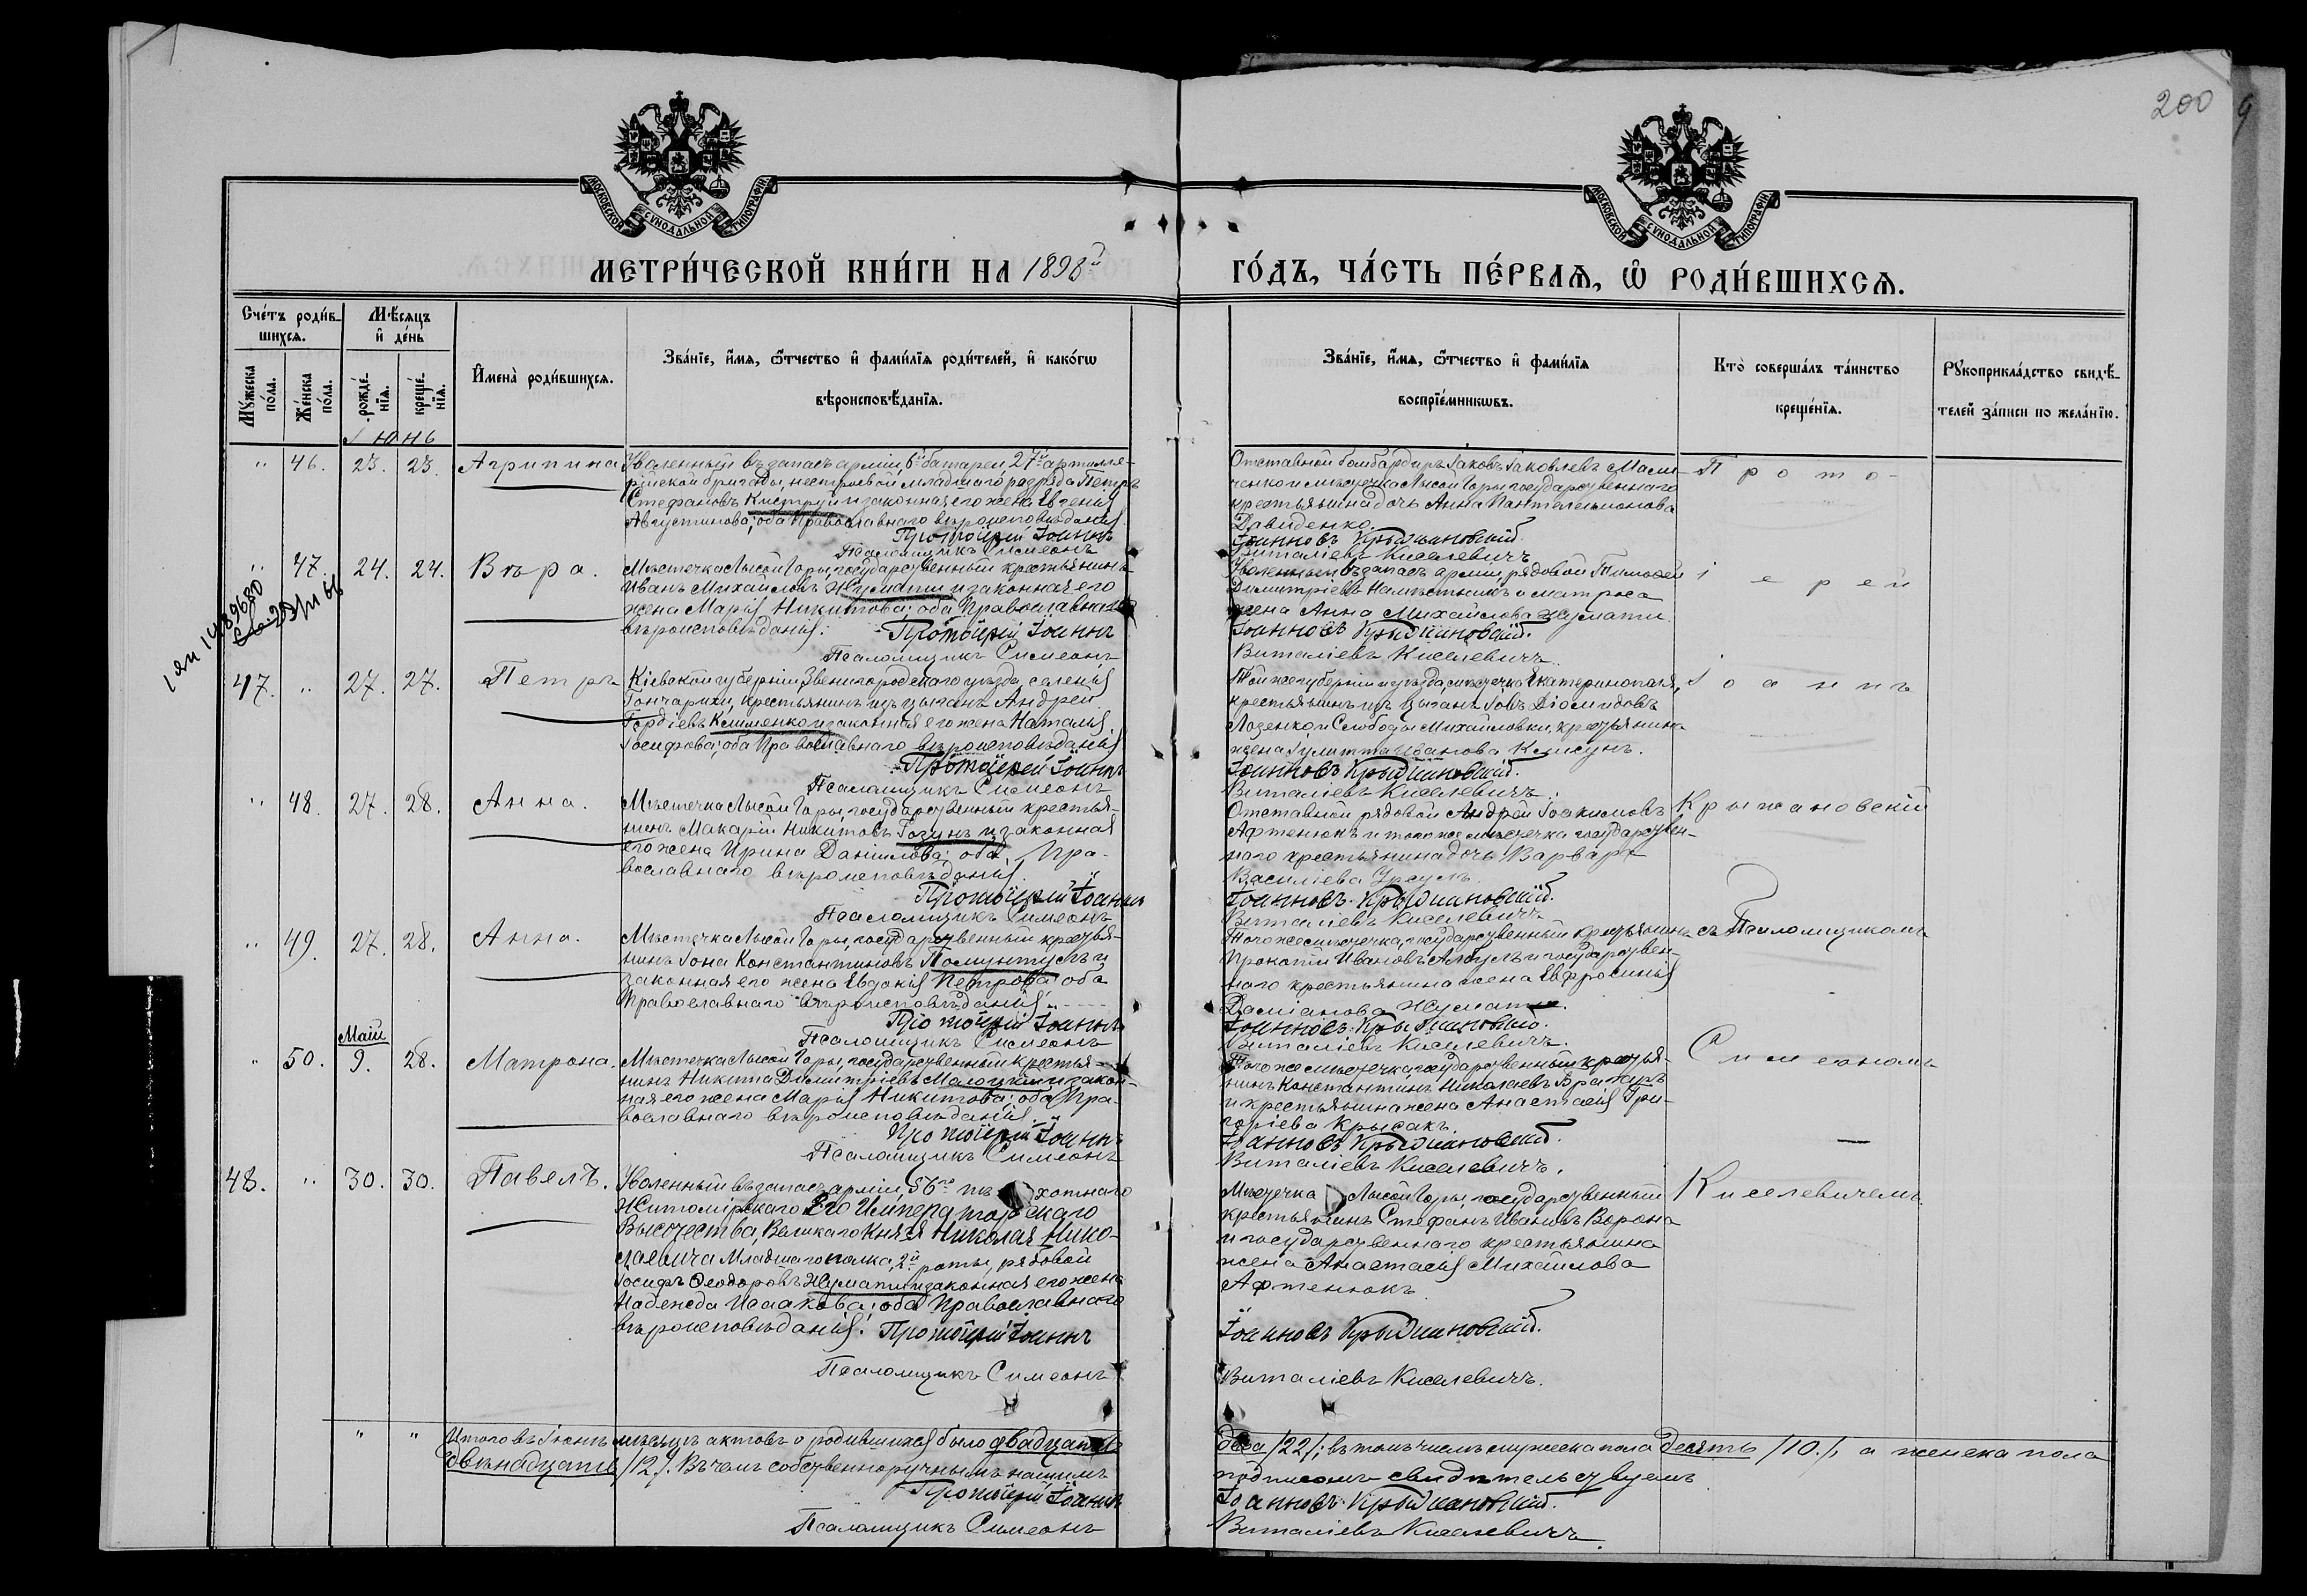 200
9
МОСКОВСКОЙ СѴНОДАЛЬНОЙ ТИПОГРАФІИ
МОСКОВСКОЙ СѴНОДАЛЬНОЙ ТИПОГРАФІИ
МЕТРИ́ЧЕСКОЙ КНИ́ГИ НА 1898й
ГО́ДЪ, ЧА́СТЬ ПЕ́РВАѦ, Ѡ҆ РОДИ́ВШИХСѦ.
Сче́тъ роди́в-
шихсѧ.
Мѣ́сѧцъ
и҆ де́нь
Мꙋ́жеска по́ла.
Же́нска по́ла.
рожде́-нїѧ.
креще́-нїѧ.
И҆мена̀ роди́вшихсѧ.
Зва́нїе, и҆́мѧ, ѻ҆́тчество и҆ фами́лїѧ роди́телей, и҆ како́гѡ
вѣроисповѣ́данїѧ.
Зва́нїе, и҆́мѧ, ѻ҆́тчество и҆ фами́лїѧ
воспрїе́мникѡвъ.
Кто̀ соверша́лъ та́инство
креще́нїѧ.
Рꙋкоприкла́дство свидѣ́-
телей за́писи по жела́нїю.
Іюнь
" 46. 23. 23. Агрипина
Уволенный въ запасъ арміи, 6й батареи 27й артилле-
рійской бригады, нестроевой младшаго разряда Петръ
Стефановъ Киструй и законная его жена Евгенія
Августинова; оба Православнаго вѣроисповѣданія.
Протоіерей Іоаннъ
Псаломщикъ Симеонъ
Отставной бомбардиръ Іаковъ Іаковлевъ
ченко и мѣстечка Лысой Горы, государственнаго
крестьянина дочь Анна Пантелеимонова
Давиденко.
Іоанновъ Крыжановскій.
Виталіевъ Киселевичъ
Прото-
" 47. 24. 24. Вѣра.
Мѣстечка Лысой Горы, государственный крестьянинъ
Иванъ Михайловъ Жумати и законная его
жена Марія Никитова; оба Православнаго
вѣроисповѣданія.
Протоіерей Іоаннъ
Псаломщикъ Симеонъ
Уволенный въ запасъ арміи рядовой Тимофей
Димитріевъ Намѣстникъ и матроса
жена Анна Михайлова Жумати
Іоанновъ Крыжановскій.
Виталіевъ Киселевичъ.
іерей
47. " 27. 27. Петръ
Кіевской губерніи, Звенигородскаго уѣзда, селенія
Гончарихи, крестьянинъ изъ цыганъ Андрей
Гордіевъ Клименко и законная его жена Наталія
Іосифова; оба Православнаго вѣроисповѣданія
Протоіерей Іоаннъ
Псаломщикъ Симеонъ
Той же губерніи и уѣзда, мѣстечка Екатеринополя,
крестьянинъ изъ цыганъ Іовъ Діомидовъ
Лозенко и Слободы Михайловки, крестьянина
жена Іулитта Иванова
Іоанновъ Крыжановскій.
Виталіевъ Киселевичъ.
Іоаннъ
" 48. 27. 28. Анна.
Мѣстечка Лысой Горы, государственный крестья-
нинъ Макарій Никитовъ Гозунъ и законная
его жена Ирина Даніилова; оба Пра-
вославнаго вѣроисповѣданія.
Протоіерей Іоаннъ
Псаломщикъ Симеонъ
Отставной рядовой Андрей Іоакимовъ
Афтенюкъ и того же мѣстечка государствен-
наго крестьянина дочь Варвара
Василіева Урсулъ.
Іоанновъ Крыжановскій.
Виталіевъ Киселевичъ
Крыжановскій
" 49. 27. 28. Анна.
Мѣстечка Лысой Горы, государственный крестья-
нинъ Іона Константиновъ и
законная его жена Евдокія Петрова; оба
Православнаго вѣроисповѣданія.
Протоіерей Іоаннъ
Псаломщикъ Симеонъ
Того же мѣстечка, государственный крестьянинъ
Прокопій Ивановъ и государствен-
наго крестьянина жена Евфросинія
Даміанова Жумати.
Іоанновъ Крыжановскій.
Виталіевъ Киселевичъ.
съ Псаломщикомъ
Май
" 50. 9. 28. Матрона.
Мѣстечка Лысой Горы, государственный крестья-
нинъ Никита Димитріевъ и закон-
ная его жена Марія Никитова; оба Пра-
вославнаго вѣроисповѣданія.
Протоіерей Іоаннъ
Псаломщикъ Симеонъ
Того же мѣстечка государственный крестья-
нинъ Константинъ Николаевъ
и крестьянина жена Анастасія Гри-
горіева Крысакъ.
Іоанновъ Крыжановскій.
Виталіевъ Киселевичъ.
Симеономъ
48. " 30. 30. Павелъ.
Уволенный въ запасъ арміи, 56го пѣхотнаго
Житомірскаго Его Императорскаго
Высочества, Великаго Князя Николая Нико-
лаевича Младшаго полка, 2й роты, рядовой
Іосифъ Ѳеодоровъ Жумати и законная его жена
Надежда Исаакова; оба Православнаго
вѣроисповѣданія.
Протоіерей Іоаннъ
Псаломщикъ Симеонъ
Мѣстечка Лысой Горы, государственный
крестьянинъ Стефанъ Ивановъ Ворона
и государственнаго крестьянина
жена Анастасія Михайлова
Афтенюкъ
Іоанновъ Крыжановскій.
Виталіевъ Киселевичъ.
Киселевичемъ
" " Итого въ Іюнѣ мѣсяцѣ актовъ о родившихся было двадцать
два /22/; въ томъ числѣ мужеска пола десять /10./, а женска пола
двѣнадцать /12/. Въ чемъ собственноручнымъ нашимъ
подписомъ свидѣтельствуемъ
Протоіерей Іоаннъ
Іоанновъ Крыжановскій.
Псаломщикъ Симеонъ
Виталіевъ Киселевичъ.